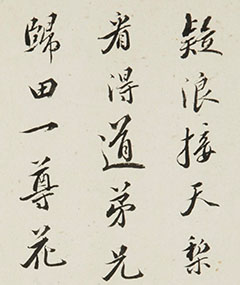 疑浪接天梨
看得道弟兄
歸田一尊花